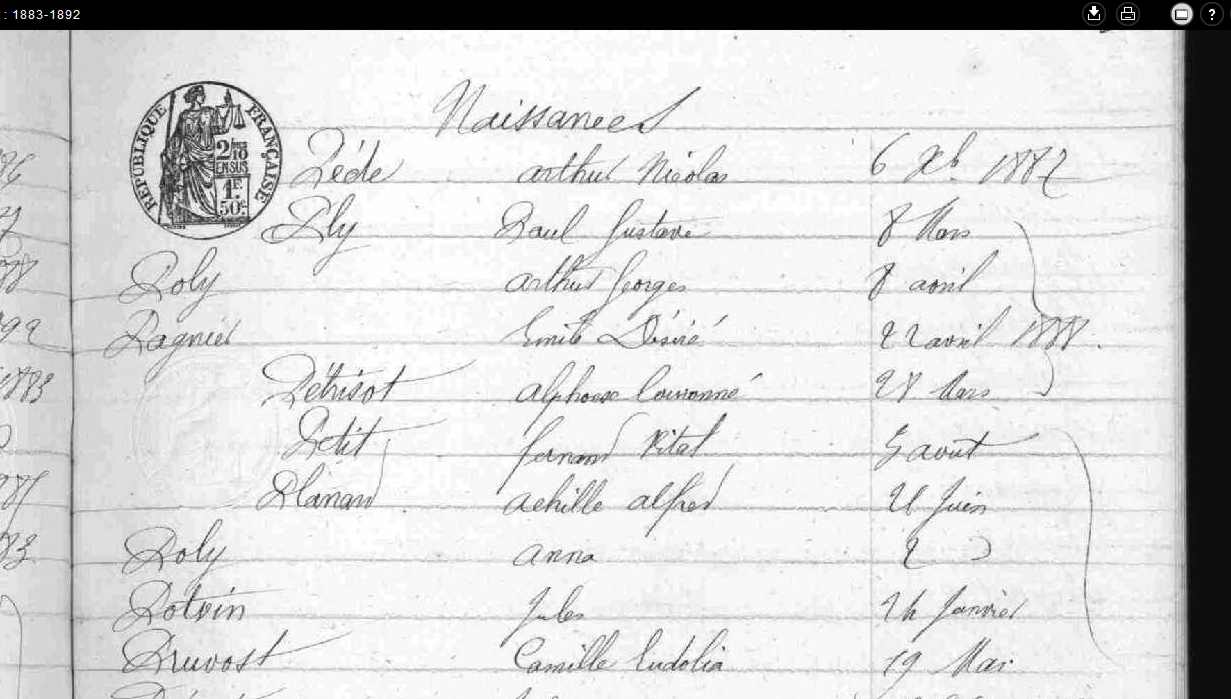 : 1883-1892
?
Naissances
RÉPUBLIQUE FRANÇAISE
2/10
EN SUS
1F.
50c
Pède arthur Nicolas 6 Xb. 1887
Ply Paul Gustave 8 Mars
Poly arthur Georges 8 avril
Pagniez Emile Désiré 22 avril 1888.
Pétrisot alphonse Couronné 28 Mars
Petit fernand Vital 5 aout
Planard achille alfred 21 Juin
Poly anna 2
Potvin Jules 24 Janvier
Pruvost Camille Eudolia 19 Mai
1883